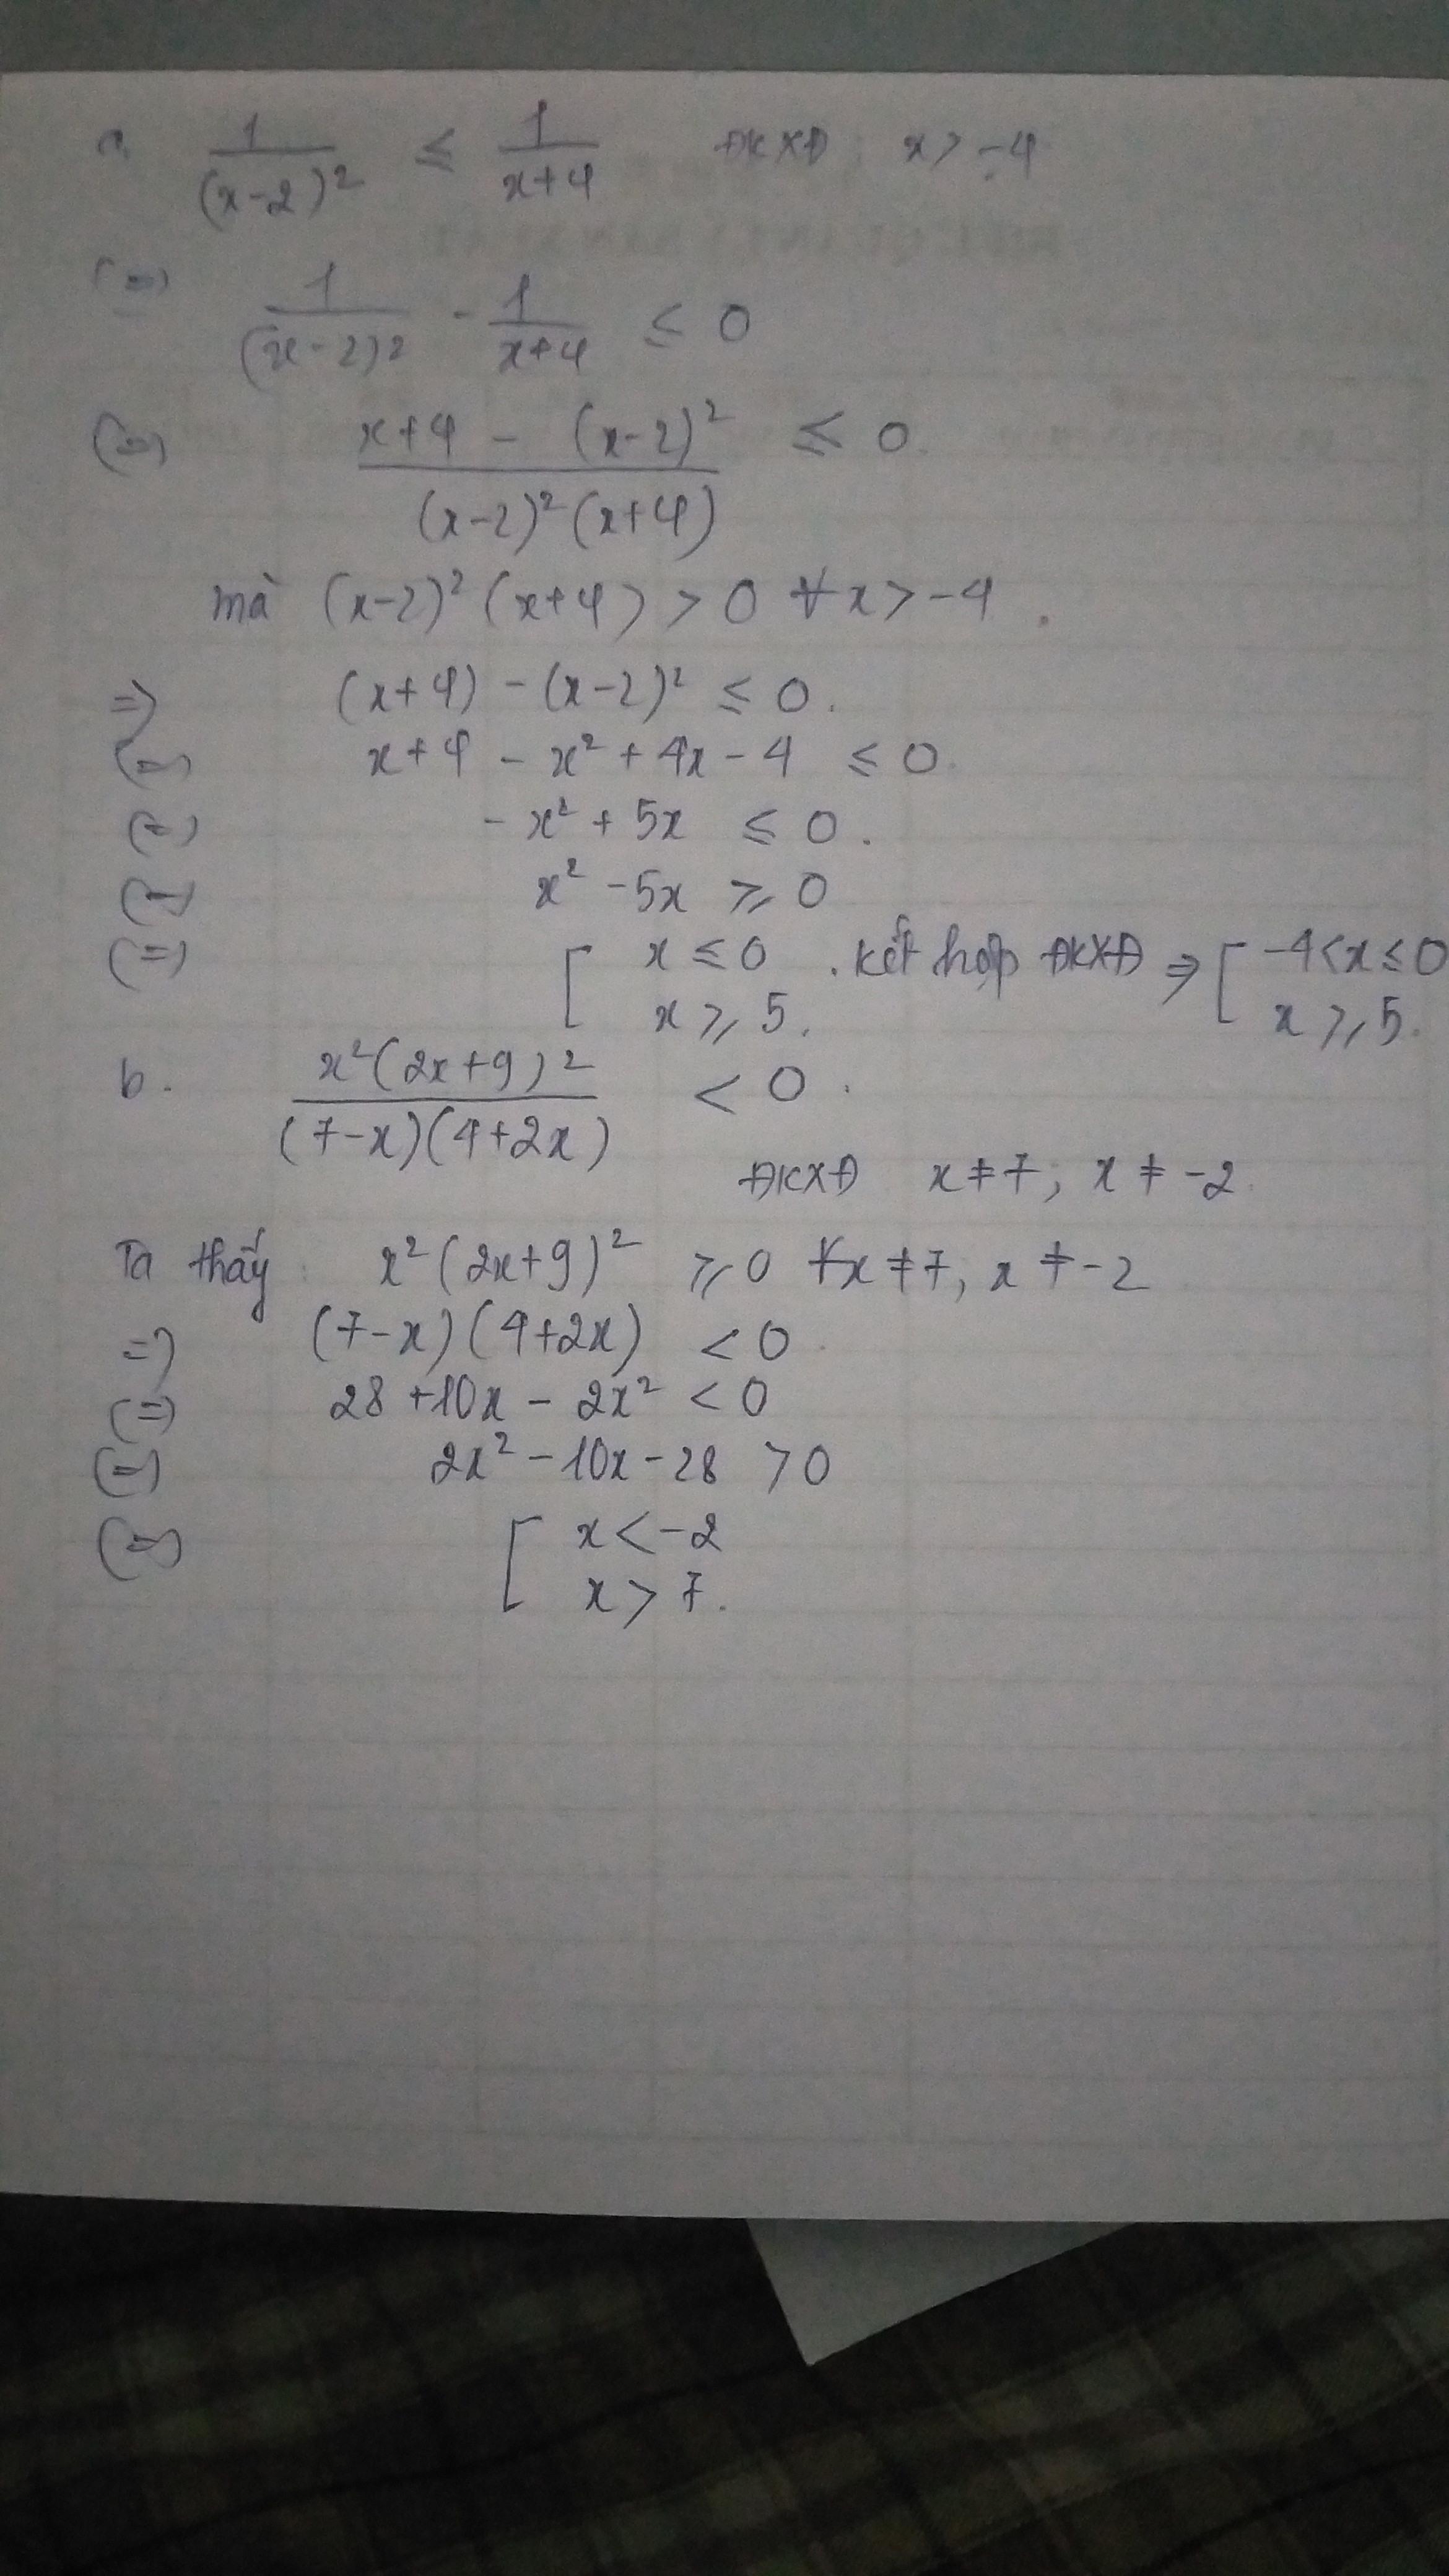 a. 1/(x-2)² ≤ 1/(x+4) ĐKXĐ: x > -4
(=) 1/(x-2)² - 1/(x+4) ≤ 0
(=) (x+4 - (x-2)²)/((x-2)²(x+4)) ≤ 0.
mà (x-2)²(x+4) > 0 ∀x > -4.
=> (x+4) - (x-2)² ≤ 0.
(=) x+4 - x² + 4x - 4 ≤ 0.
(=) - x² + 5x ≤ 0.
(=) x² - 5x ≥ 0
(=) [ x ≤ 0 . kết hợp ĐKXĐ => [ -4 < x ≤ 0
x ≥ 5. x ≥ 5.
b. x²(2x+9)²/((7-x)(4+2x)) < 0.
ĐKXĐ x ≠ 7; x ≠ -2
Ta thấy: x²(2x+9)² ≥ 0 ∀x ≠ 7, x ≠ -2
=> (7-x)(4+2x) < 0
(=) 28 + 10x - 2x² < 0
(=) 2x² - 10x - 28 > 0
(=) [ x < -2
x > 7.